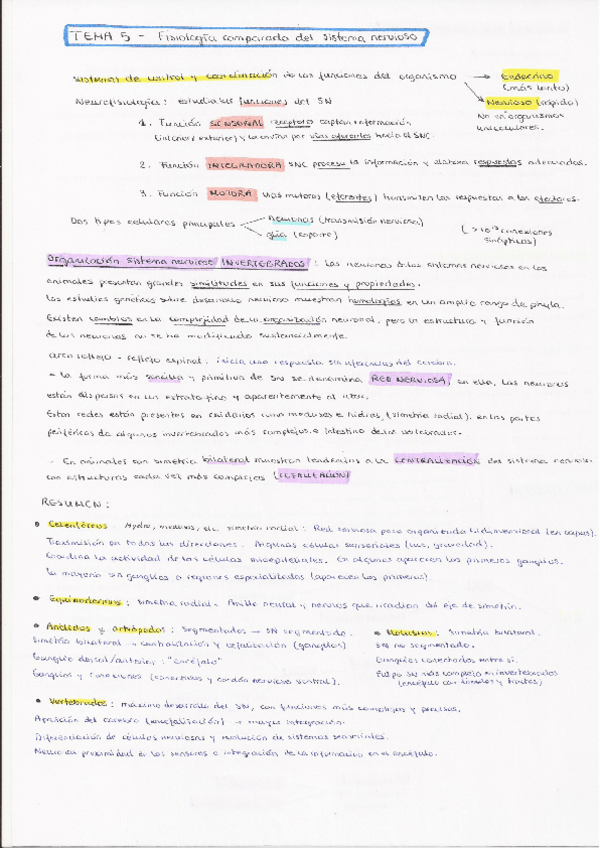 TEMA 5 - Fisiología comparada del sistema nervioso
Sistemas de control y coordinación de las funciones del organismo → Endocrino
(más lento)
Neurofisiología: estudia las funciones del SN
Nervioso (rápido)
No en organismos
unicelulares.
1. Función SENSORIAL receptores captan información
(interior/exterior) y la envían por vías aferentes hacia el SNC.
2. Función INTEGRADORA SNC procesa la información y elabora respuestas adecuadas.
3. Función MOTORA vías motoras (eferentes) transmiten las respuestas a los efectores.
Dos tipos celulares principales
neuronas (transmisión nerviosa)
glía (soporte)
conexiones
sinápticas)
Organización sistema nervioso INVERTEBRADOS: Las neuronas de los sistemas nerviosos en los
animales presentan grandes similitudes en sus funciones y propiedades.
Los estudios genéticos sobre desarrollo nervioso muestran homologías en un amplio rango de phyla.
Existen cambios en la complejidad de la organización neuronal, pero la estructura y función
de las neuronas no se ha modificado sustancialmente.
Arco reflejo - reflejo espinal: inicia una respuesta sin del cerebro.
- La forma más sencilla y primitiva de SN se denomina RED NERVIOSA, en ella, las neuronas
están dispersas en un estrato fino y aparentemente al azar.
Estas redes están presentes en cnidarios como medusas e hidras (simetría radial), en las partes
periféricas de algunos invertebrados más complejos e intestino de los vertebrados.
- En animales con simetría bilateral muestran tendencias a la CENTRALIZACIÓN del sistema nervioso
con estructuras cada vez más complejas (CEFALIZACIÓN)
RESUMEN:
• Celentéreos: Hydra, medusas, etc. simetría radial: Red nerviosa poco organizada bidimensional (en capas).
Transmisión en todas las direcciones. Algunas células sensoriales (luz, gravedad).
Coordina la actividad de las células mioepiteliales. En algunos aparecen los primeros ganglios.
La mayoría sin ganglios o regiones especializadas (aparecen los primeros).
• Equinodermos: Simetría radial. Anillo neural y nervios que irradian del eje de simetría.
• Anélidos y artrópodos: Segmentados → SN segmentado.
Simetría bilateral → centralización y cefalización (ganglios)
Ganglio dorsal/anterior: "encéfalo"
Ganglios y conexiones (conectivos y cordón nervioso ventral).
• Moluscos: Simetría bilateral.
SN no segmentado.
Ganglios conectados entre sí.
Pulpo SN más complejo en invertebrados
(encéfalo con lóbulos y tractos)
• Vertebrados: máximo desarrollo del SN, con funciones más complejas y precisas.
Aparición del cerebro (encefalización) → mayor integración.
Diferenciación de células nerviosas y evolución de sistemas sensoriales.
proximidad de los sensores e integración de la información en el encéfalo.